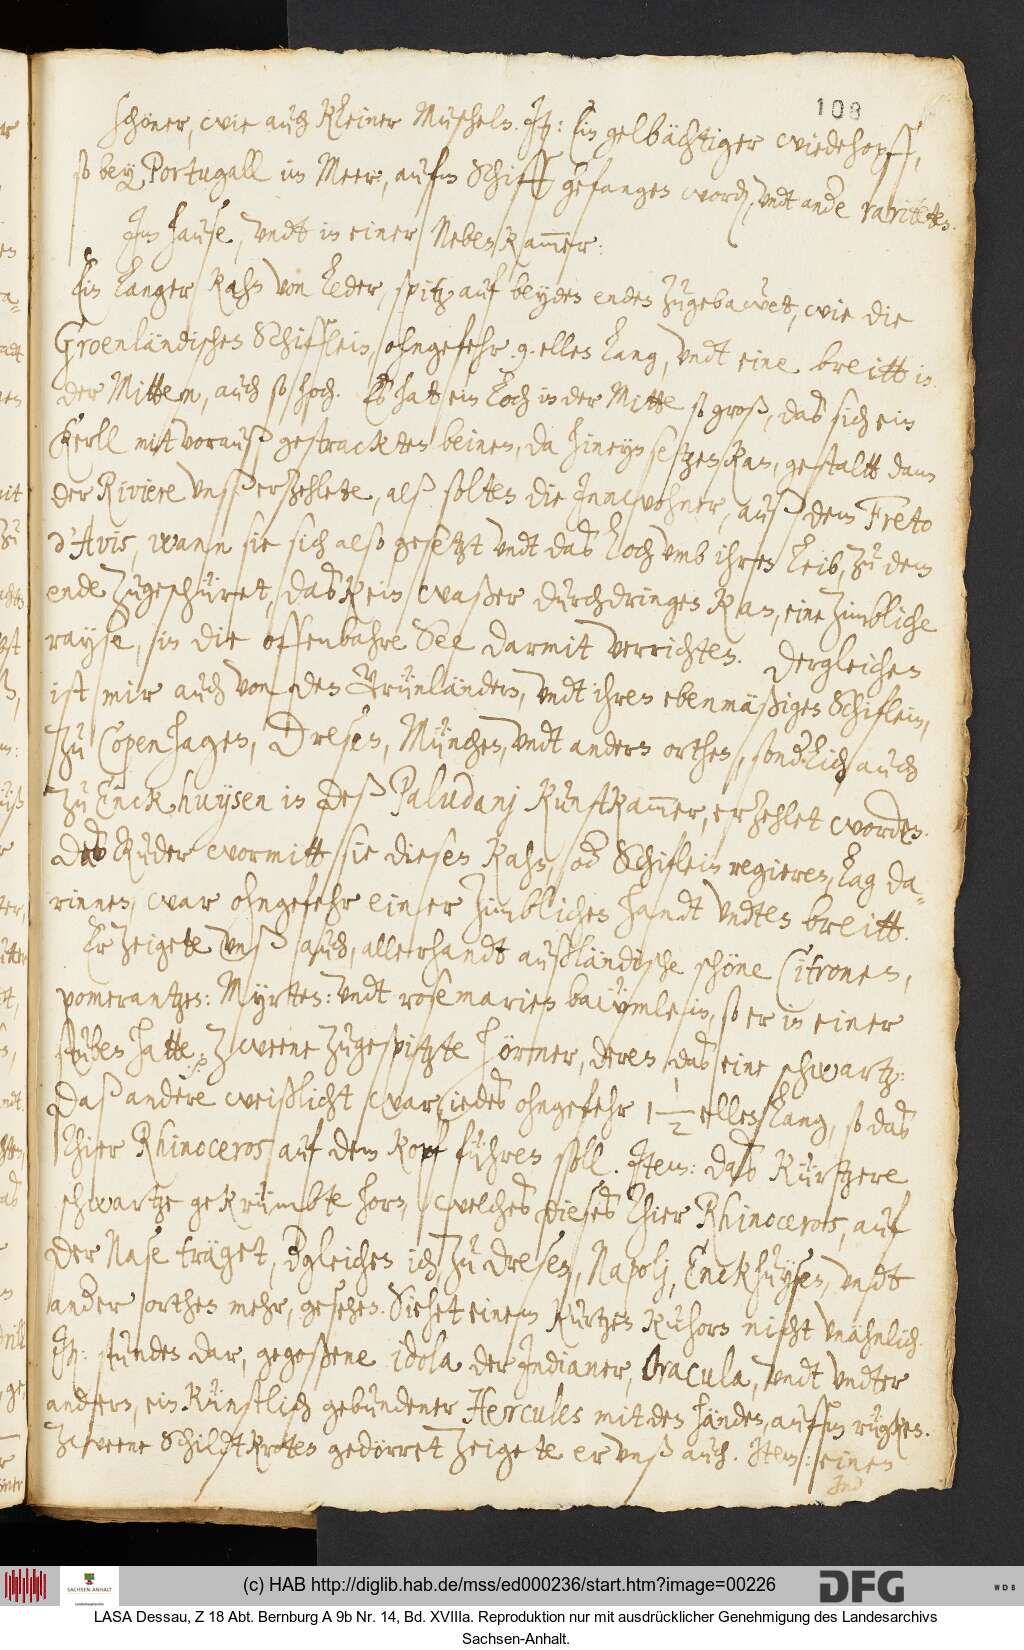 108
schöner, wie auch kleiner Muscheln. Jt: Ein gelbächtiger wiedehopff,
so bey Portugall im Meer, aufm Schiff gefangen word, vndt ande raritete͞n.
Jm hause, vndt in einer Neben Kammer:
Ein langer Kahn von leder, spitz auf beyden enden zugebawet, wie die
Groenländischen Schifflein, ohngefehr .9. ellen lang, vndt eine breitt in
der Mitten, auch so hoch. Es hat ein loch in der Mitte so groß, das sich ein
Kerll mit vorauß gestrackten beinen, da hineyn setzen kan, gestaltt dann
der Riviere vnß erzehlete, alß solten die Jnnwohner, auß dem Freto
d'Avis, wann sie sich also gesetzt vndt das loch vmb ihren leib, zu dem
ende zugeschüret, das kein waßer durchdringen kan, eine zimbliche
rayse, in die offenbahre See darmit verrichten. Dergleichen
ist mir auch von den Grünländern, vndt ihren ebenmäßigen Schiflein,
zu Copenhagen, Dresen, München, vndt andern orthen, sonderlich auch
zu Enckhuysen in deß Paludanj Kunstkammer, erzehlet worden.
Das Ruder wormitt sie diesen Kahn, od Schiflein regieren, lag da-
rinnen, war ohngefehr einer zimblichen handt vndten breitt.
Er zeigete vnß auch, allerhandt außländische schöne Citronen,
pomerantzen: Myrten: vndt rosemarien baümlein, so er in einer
stuben hatte, Zweene zugespitzte hörner, deren das eine schwartz:
Daß andere weißlicht war, iedes ohngefehr 1 1/2 ellen lang, so das
Thier Rhinoceros auf dem kopf führen soll. Jtem: das kürtzere
schwartze gekrümbte horn, welches dieses Thier Rhinoceros, auf
der Nase träget, Dgleichen ich zu Dresen, Napolj, Enckhuysen, vndt
ander orthen mehr, gesehen. Siehet einem kurtzen kuhorn nicht vnähnlich.
Jt: stunden dar, gegoßene idola der Jndianer, Oracula, vndt vndter
andern, ein künstlich gebundener Hercules mit den händen, aufm rügken.
Zweene Schildtkroten gedörret zeigete er vnß auch. Jtem: einen
Jnd
(c) HAB http://diglib.hab.de/mss/ed000236/start.htm?image=00226
SACHSEN-ANHALT
DFG
W D B
LASA Dessau, Z 18 Abt. Bernburg A 9b Nr. 14, Bd. XVIIIa. Reproduktion nur mit ausdrücklicher Genehmigung des Landesarchivs
Sachsen-Anhalt.